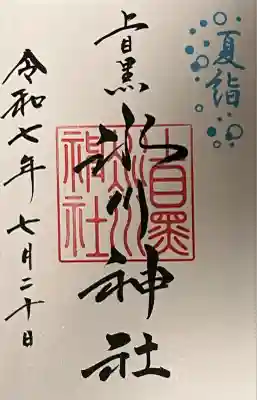 夏詣
上目黒氷川神社
上目黒氷川神社
令和七年七月二十日